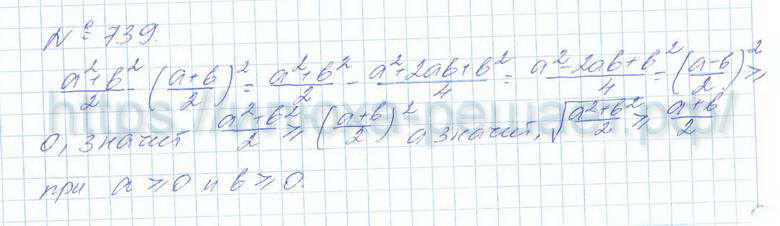 № 739.
(a²+b²)/2 - ((a+b)/2)² = (a²+b²)/2 - (a²+2ab+b²)/4 = (a²-2ab+b²)/4 = ((a-b)/2)² ≥
0, значит (a²+b²)/2 ≥ ((a+b)/2)² а значит, √((a²+b²)/2) ≥ (a+b)/2
при a ≥ 0 и b ≥ 0.